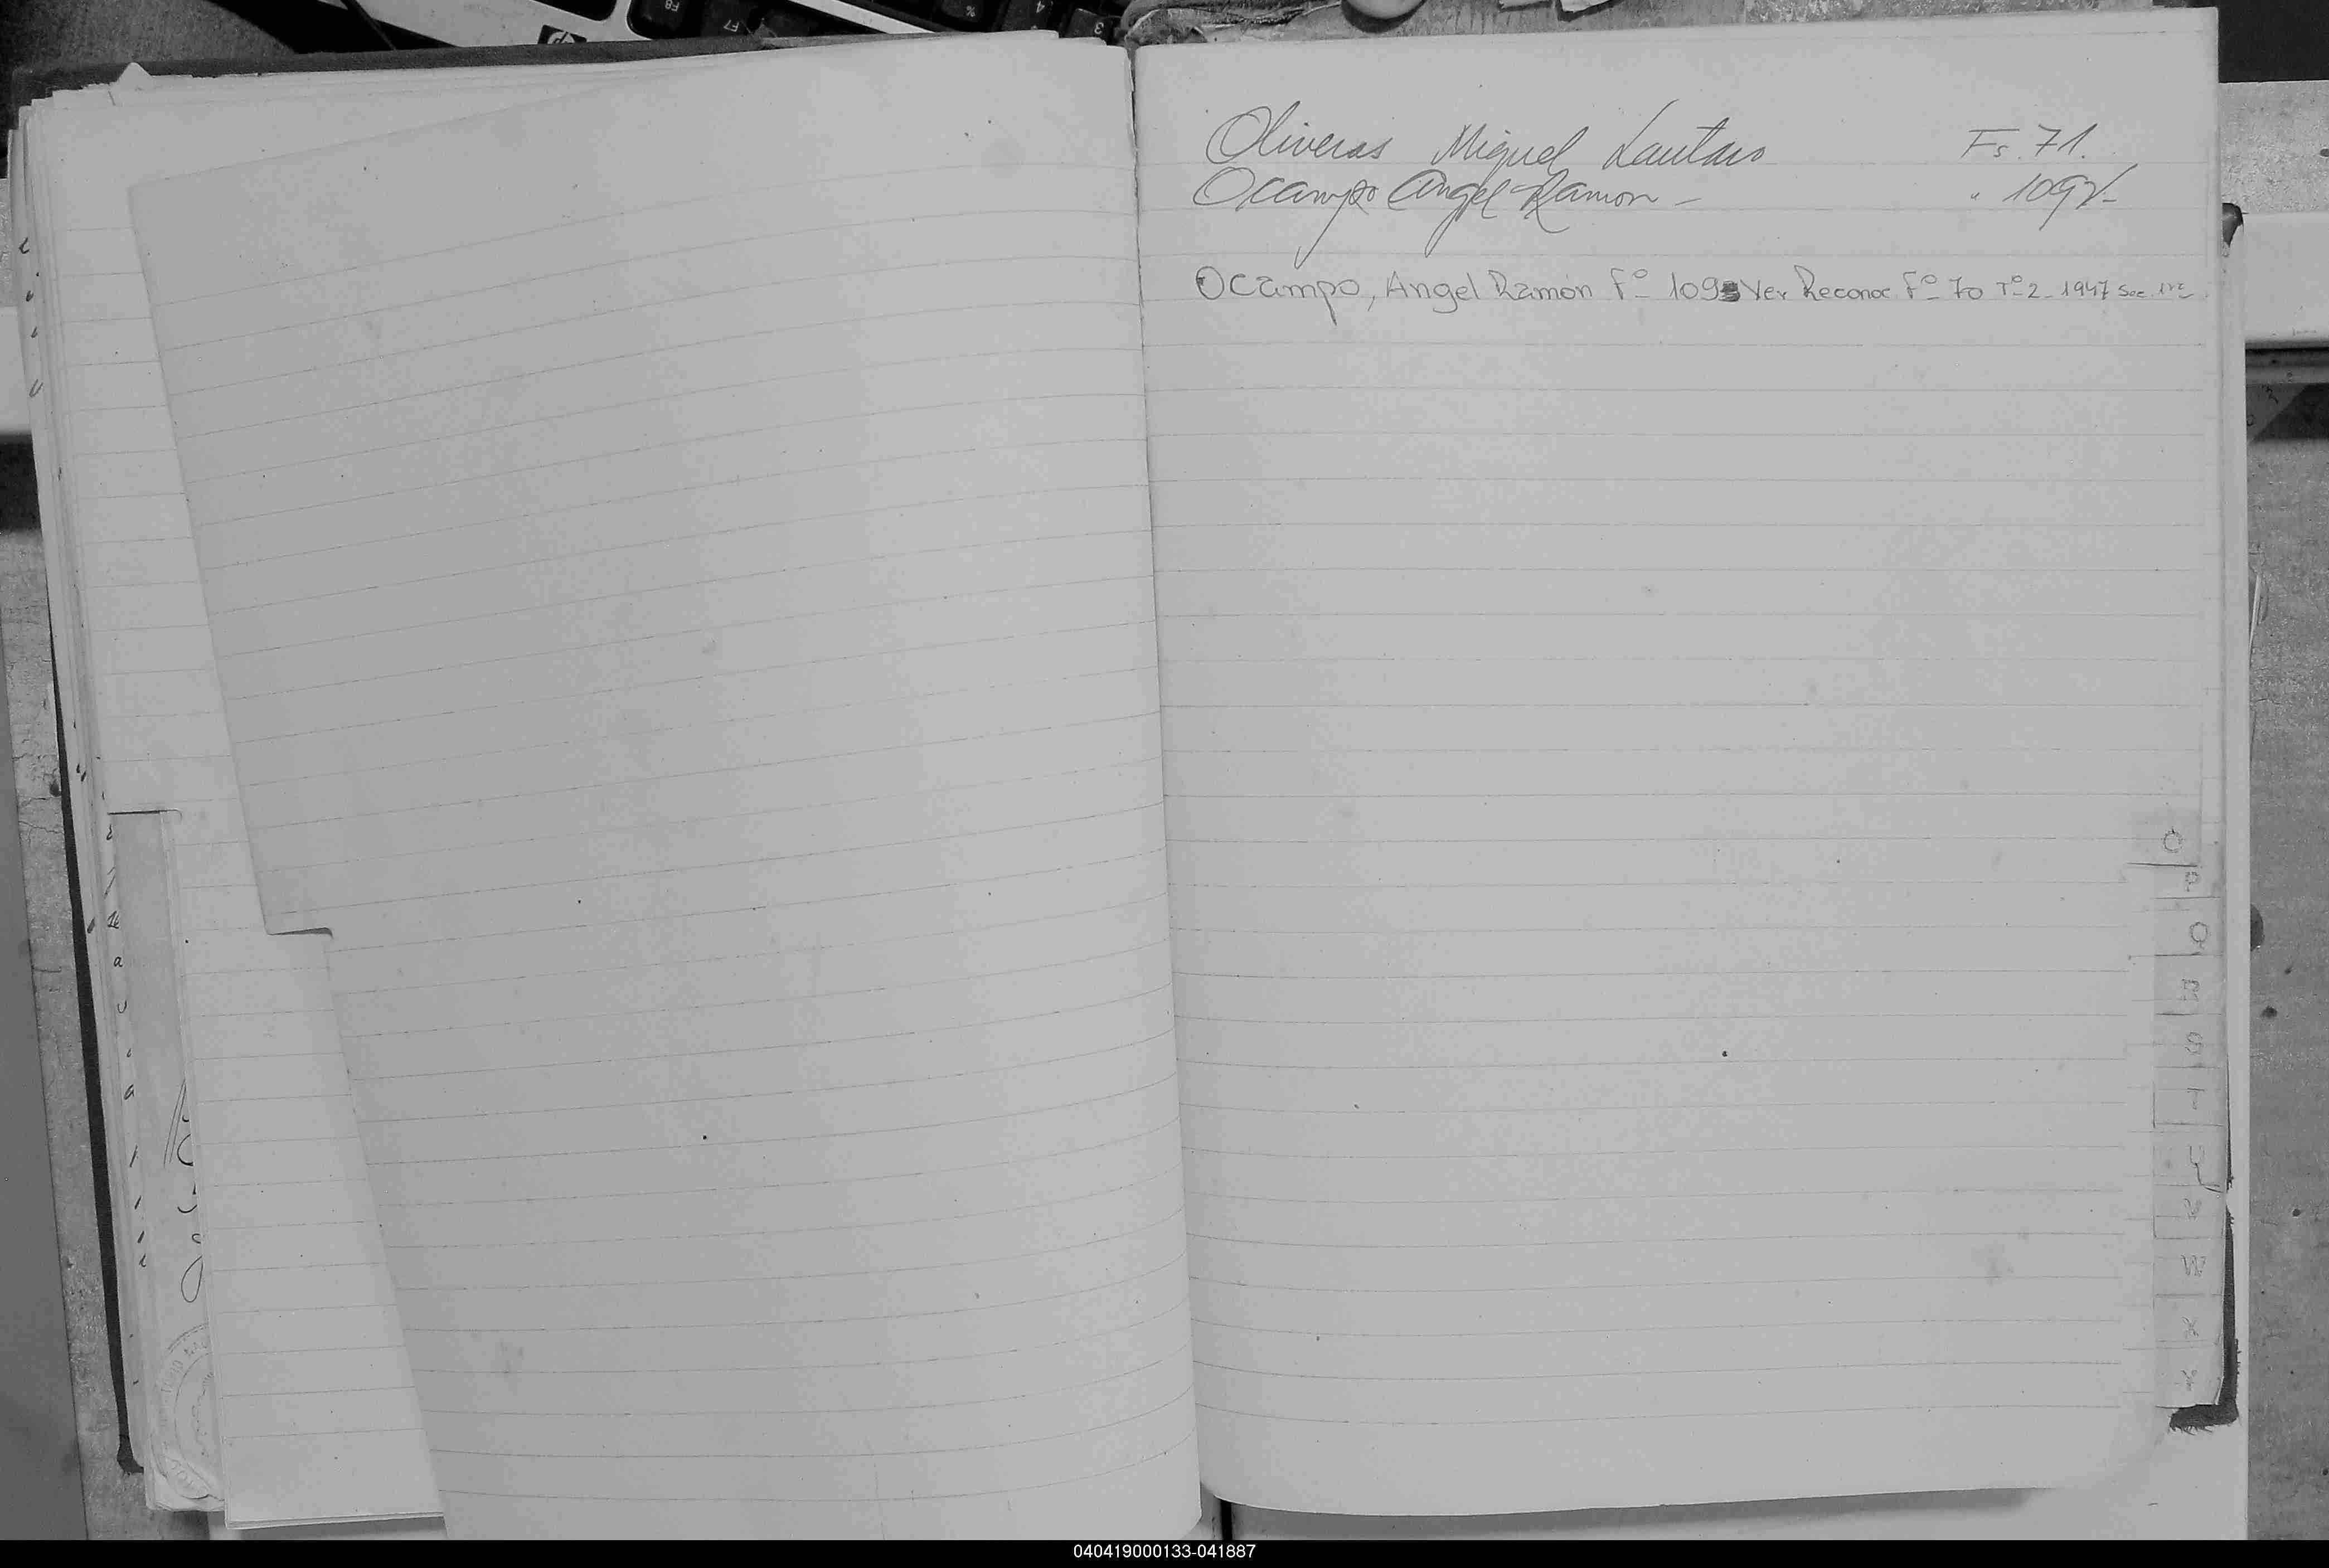 Oliveras Miguel Lautaro Fs. 71.
Ocampo Angel Ramon - " 109
Ocampo, Angel Ramón Fº 109 Ver Reconoc. Fº 70 Tº 2 - 1947 Sec. 1ra
O
P
Q
R
S
T
U
V
W
X
Y
040419000133-041887